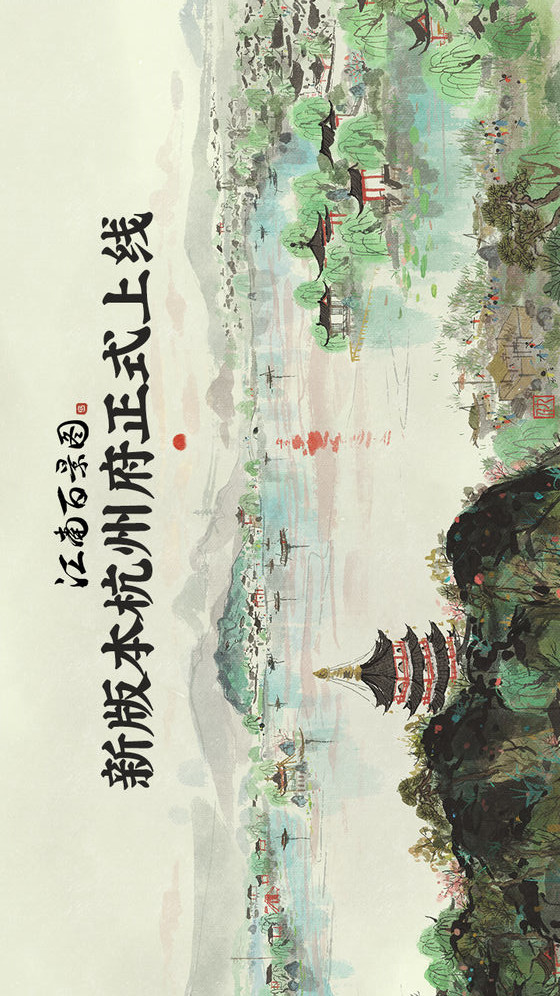 江南百景图
新版本杭州府正式上线